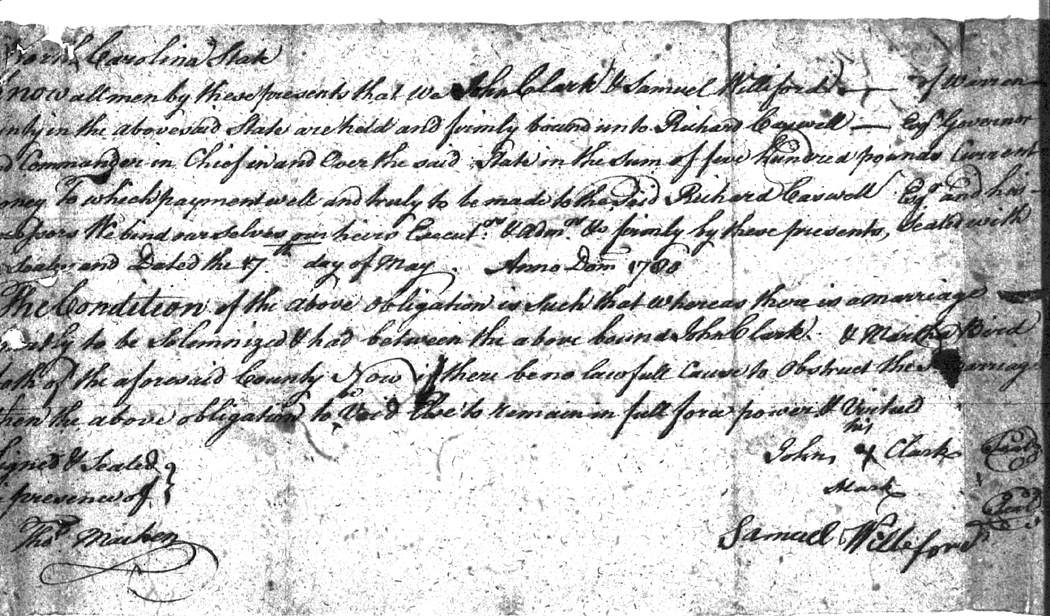 North Carolina State
Know all men by these presents that we John Clark & Samuel Willeford — of
in the above said State are held and firmly bound unto Richard Caswell — Esqr. Governor
Commander in Chief in and Over the said State in the sum of five hundred pounds Current
To which payment well and truly to be made to the said Richard Caswell Esqr. and his
We bind ourselves our heirs Executrs. & Admrs. firmly by these presents, Sealed with
Seales and Dated the 17th day of May. Anno Dom 1780
The Condition of the above obligation is such that whereas there is a marriage
to be Solemnized & had between the above bound John Clark. & Martha Bird
both of the aforesaid County Now if there be no lawfull Cause to Obstruct the sd marriage
then the above obligation to be Void Else to remain in full force power & Vertue
his
John x Clark Seal
Mark
Signed & Sealed
presence of
Seal
Samuel Willeford
Thos.